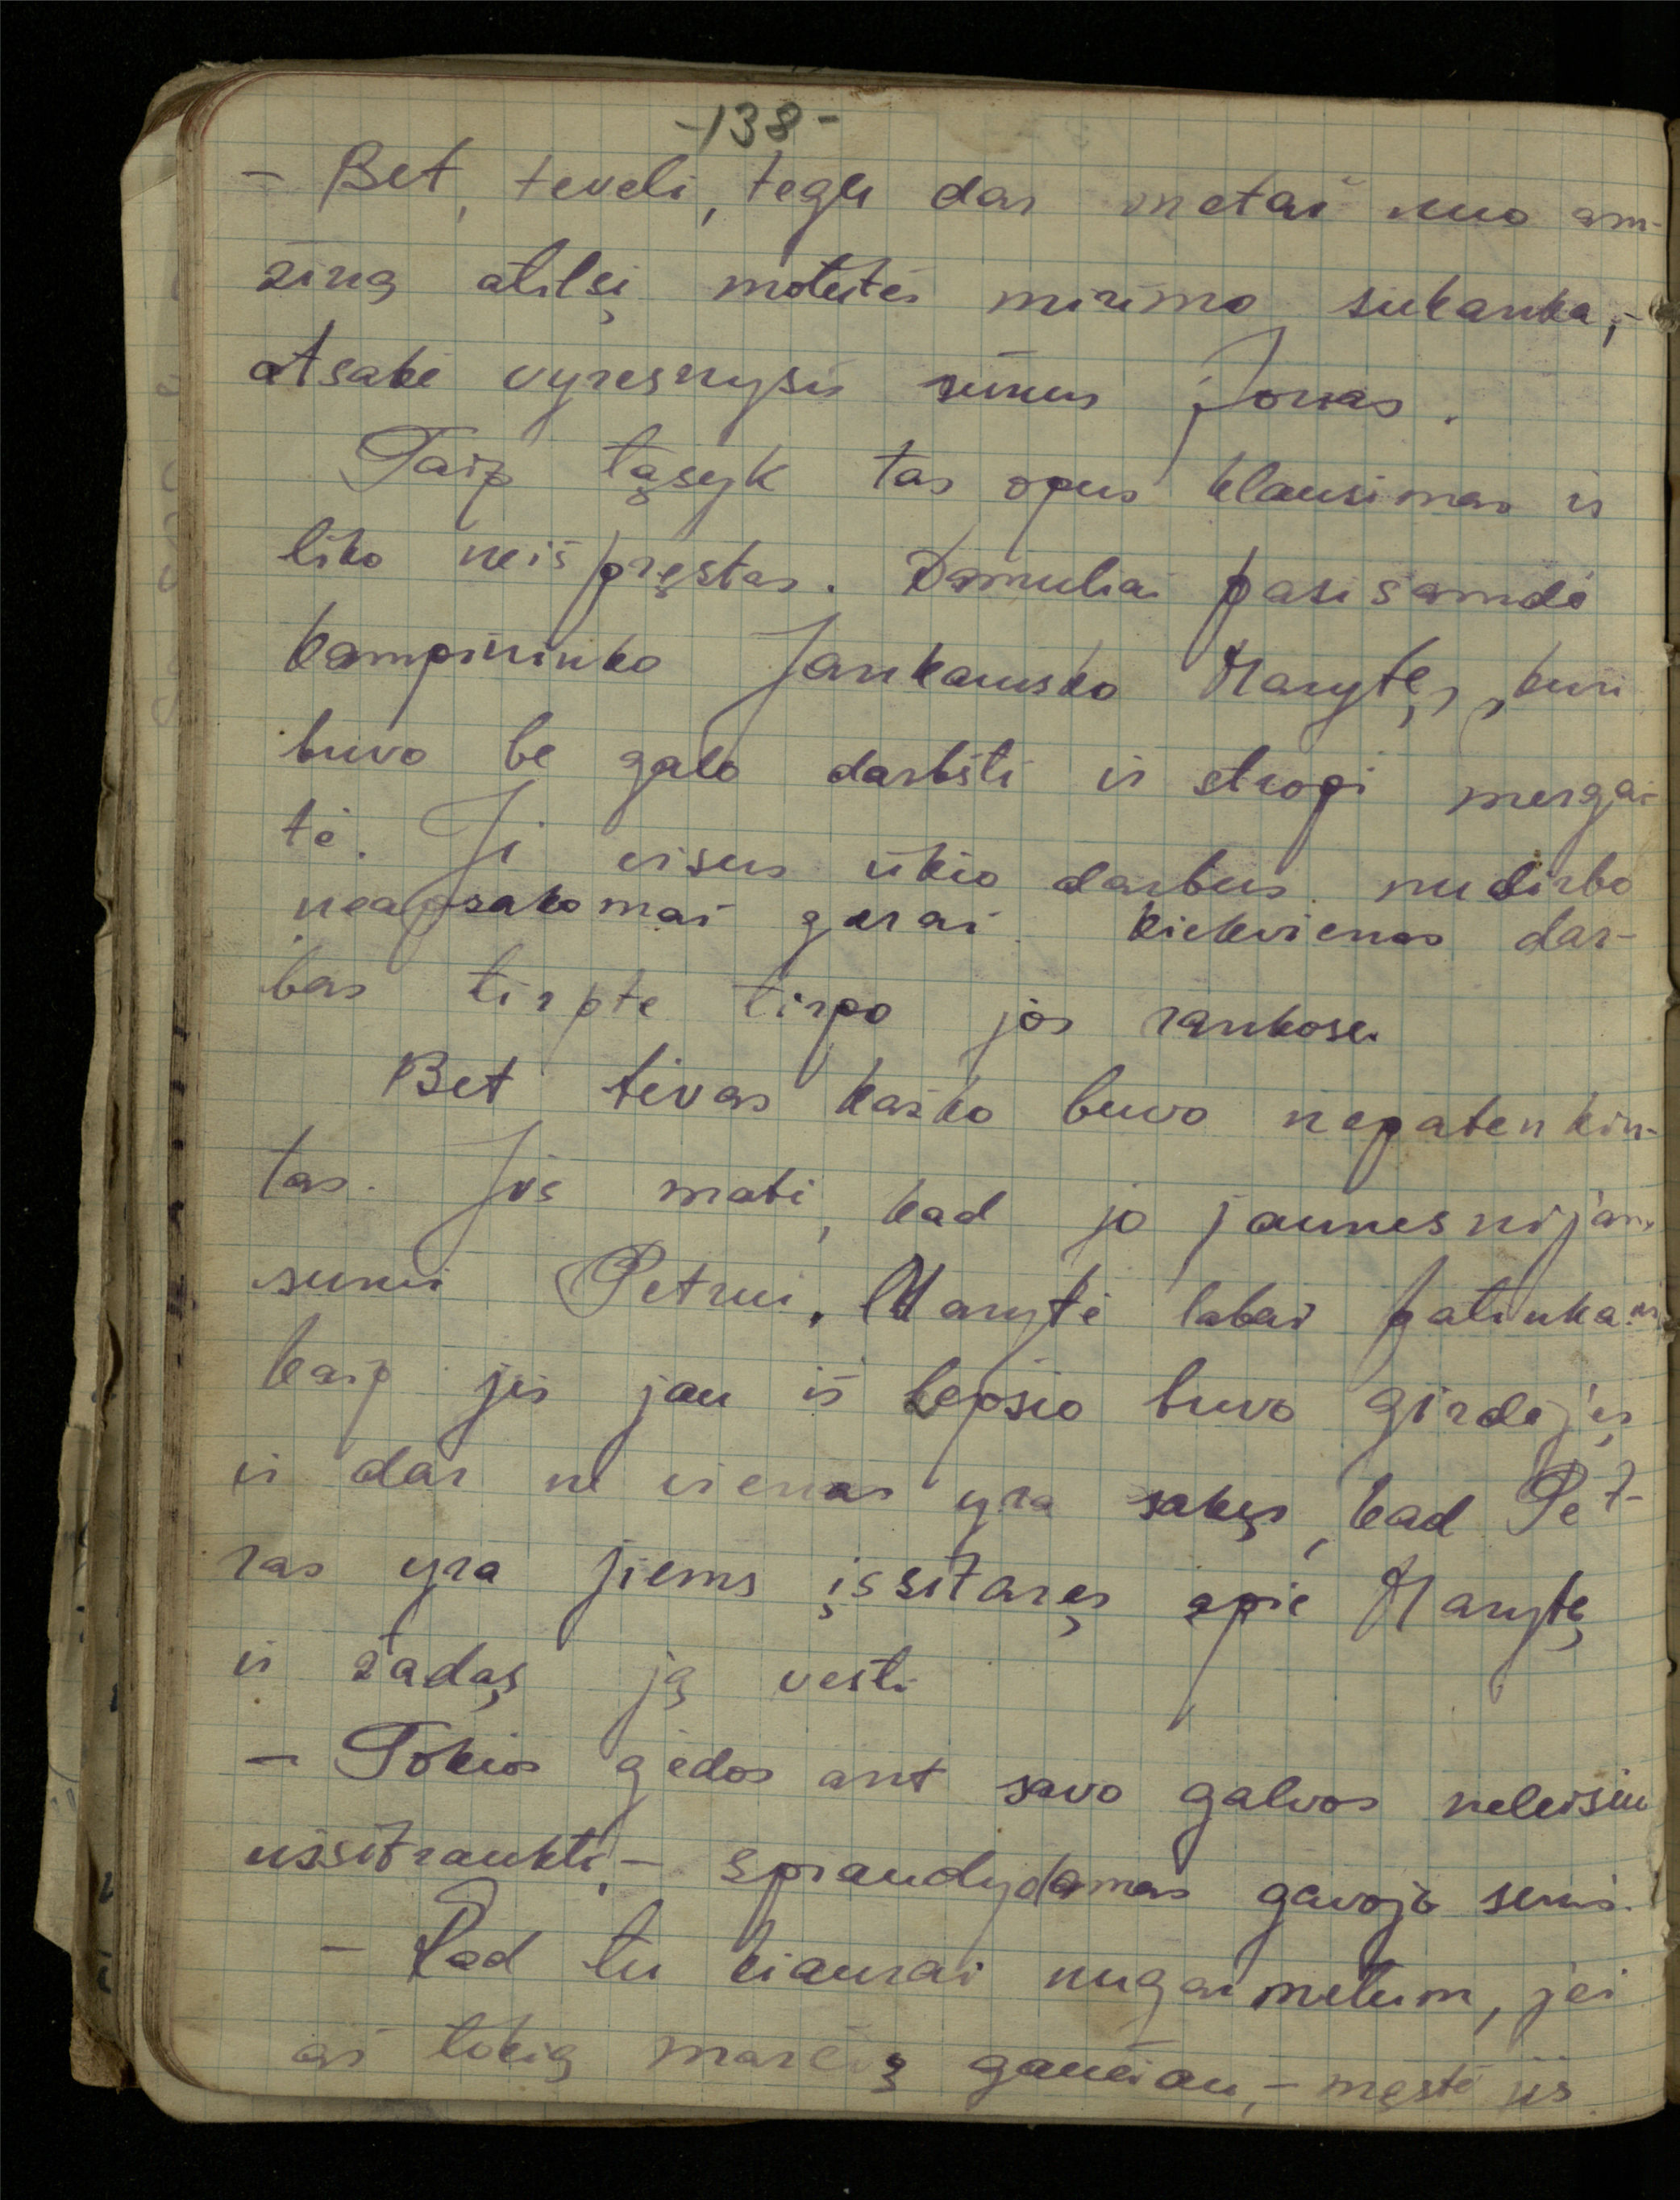 -138-
- Bet, teveli, tegu dar metai nuo am-
žiną atilsį motutės mirimo sukanka,-
atsakė vyresnysis sūnus Jonas.
Taip tąsyk tas opus klausimas ir
liko neišpręstas. Damuliai pasisamdė
kampininko Jankausko Marytę, kuri
buvo be galo darbšti ir stropi mergai-
tė. Ji visus ūkio darbus nudirbo
neapsakomai gerai. Kiekvienas dar-
bas tirpte tirpo jos rankose.
Bet tėvas kažko buvo nepatenkin-
tas. Jis matė, kad jo jaunesnijam
sunui Petrui, Marytė labai patinka.
Kaip jis jau iš
buvo girdėjęs
ir dar ne vienas yra sakęs, kad Pet-
ras yra jiems įssitaręs apie Marytę
ir žadąs ją vesti.
- Tokios gėdos ant savo galvos neleisiu
užsitraukti,- spiaudydamas
senis.
- Kad tu kiaurai
jei
aš tokią marčią gaučiau,- mąstė jis